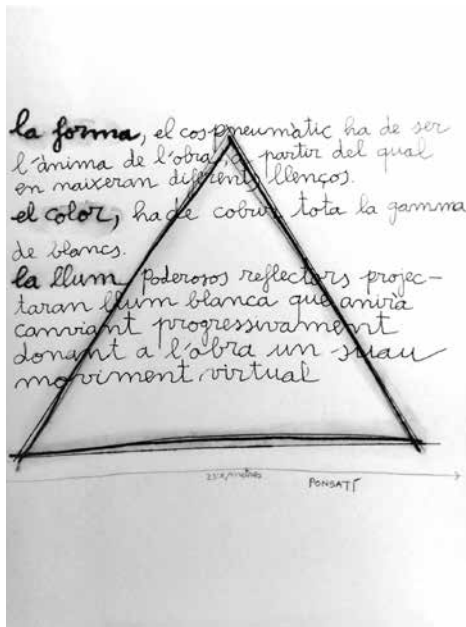 la forma, el cos pneumàtic ha de ser
l'ànima de l'obra, a partir del qual
en naixeran diferents llenços.
el color, ha de cobrir tota la gamma
de blancs.
la llum poderosos reflectors projec-
taran llum blanca que anirà
canviant progressivament
donant a l'obra un suau
moviment virtual
PONSATÍ